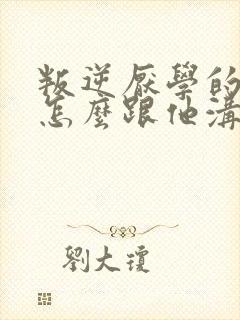 叛逆厭學的
怎麼跟他溝
劉大瓊